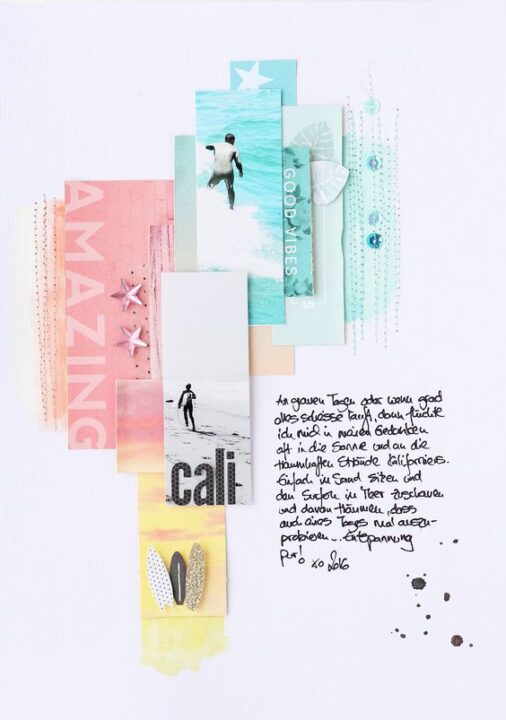 GOOD VIBES
AMAZING
cali
An grauen Tagen oder wenn grad
alles scheisse läuft, dann flüchte
ich mich in meinen Gedanken
oft in die Sonne und an die
traumhaften Strände Kaliforniens.
Einfach im Sand sitzen und
den Surfern im Meer zuschauen
und davon träumen, dass
auch eines Tages mal auszu-
probieren... Entspannung
pur! xo 2016